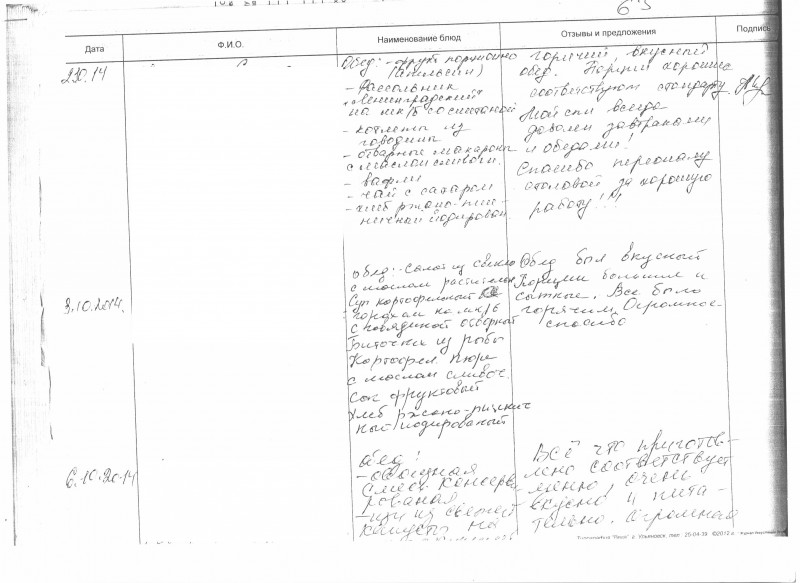 6 3
Дата
Ф.И.О.
Наименование блюд
Отзывы и предложения
Подпись
2.10.14
Обед: - фрукт порционно
(апельсин)
- Рассольник
"Ленинградский"
на мк/б со сметаной
- котлеты из
говядины
- отварные макароны
с маслом сливочн.
- вафли
- чай с сахаром
- хлеб ржано-пше-
ничный йодирован
горячий, вкусный
обед. Порции хорошие
соответствуют стандарту.
Мой сын всегда
доволен завтраками
и обедами!
Спасибо персоналу
столовой за хорошую
работу!!!
3.10.2014.
Обед: - Салат из свеклы
с маслом растительн
Суп картофельный
горохом на мк/б
с говядиной отварной
Биточки из рыбы
Картофел. пюре
с маслом сливоч.
Сок фруктовый
Хлеб ржано-пшенич
ный йодированый
Обед был вкусный
Порции большие и
сытные. Все было
горячим. Огромное
спасибо
6.10.2014
Обед:
- овощная
смесь консерви
рованая
- щи из свежей
капусты на
Всё что приготов-
лено соответствует
меню, очень
вкусно и пита-
тельно. Огромная
Типография "Вега" г. Ульяновск, тел.: 25-04-39 ©2012 г.